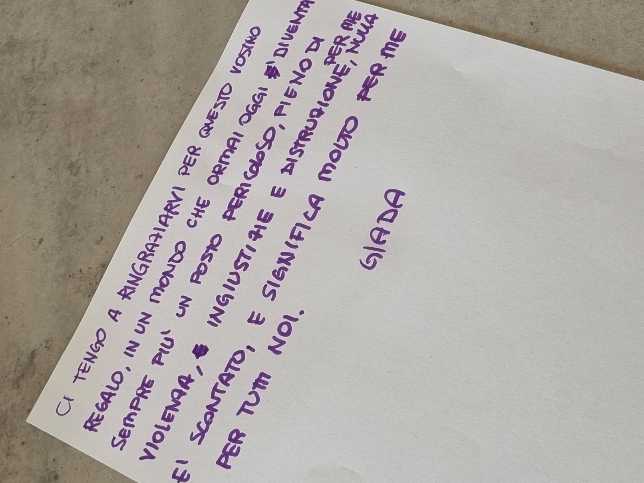 CI TENGO A RINGRAZIARVI PER QUESTO VOSTRO
REGALO, IN UN MONDO CHE ORMAI OGGI È DIVENTA
SEMPRE PIU' UN POSTO PERICOLOSO, PIENO DI
VIOLENZA, INGIUSTIZIE E DISTRUZIONE, PER ME NULLA
E' SCONTATO, E SIGNIFICA MOLTO PER ME
PER TUTTI NOI.
GIADA